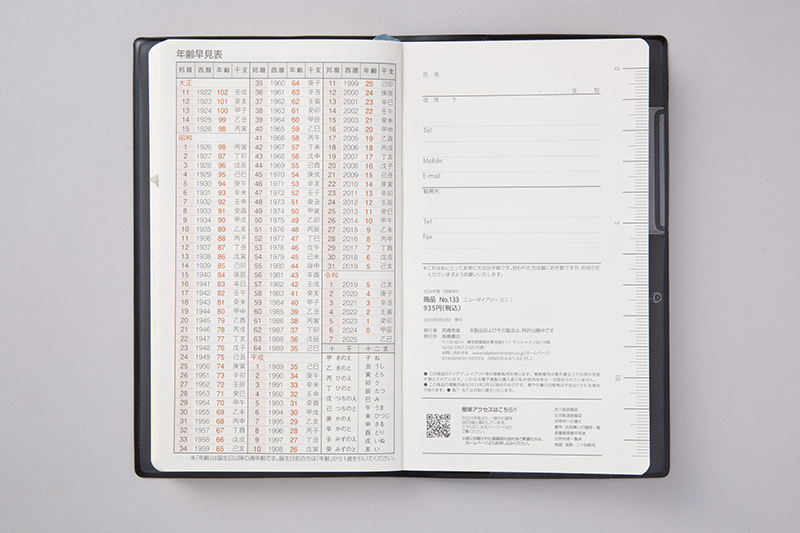 年齢早見表
邦暦 西暦 年齢 干支 邦暦 西暦 年齢 干支 邦暦 西暦 年齢 干支
大正 35 1960 64 庚子 11 1999 25 己卯
11 1922 102 壬戌 36 1961 63 辛丑 12 2000 24 庚辰
12 1923 101 癸亥 37 1962 62 壬寅 13 2001 23 辛巳
13 1924 100 甲子 38 1963 61 癸卯 14 2002 22 壬午
14 1925 99 乙丑 39 1964 60 甲辰 15 2003 21 癸未
15 1926 98 丙寅 40 1965 59 乙巳 16 2004 20 甲申
昭和 41 1966 58 丙午 17 2005 19 乙酉
1 1926 98 丙寅 42 1967 57 丁未 18 2006 18 丙戌
2 1927 97 丁卯 43 1968 56 戊申 19 2007 17 丁亥
3 1928 96 戊辰 44 1969 55 己酉 20 2008 16 戊子
4 1929 95 己巳 45 1970 54 庚戌 21 2009 15 己丑
5 1930 94 庚午 46 1971 53 辛亥 22 2010 14 庚寅
6 1931 93 辛未 47 1972 52 壬子 23 2011 13 辛卯
7 1932 92 壬申 48 1973 51 癸丑 24 2012 12 壬辰
8 1933 91 癸酉 49 1974 50 甲寅 25 2013 11 癸巳
9 1934 90 甲戌 50 1975 49 乙卯 26 2014 10 甲午
10 1935 89 乙亥 51 1976 48 丙辰 27 2015 9 乙未
11 1936 88 丙子 52 1977 47 丁巳 28 2016 8 丙申
12 1937 87 丁丑 53 1978 46 戊午 29 2017 7 丁酉
13 1938 86 戊寅 54 1979 45 己未 30 2018 6 戊戌
14 1939 85 己卯 55 1980 44 庚申 31 2019 5 己亥
15 1940 84 庚辰 56 1981 43 辛酉 令和
16 1941 83 辛巳 57 1982 42 壬戌 1 2019 5 己亥
17 1942 82 壬午 58 1983 41 癸亥 2 2020 4 庚子
18 1943 81 癸未 59 1984 40 甲子 3 2021 3 辛丑
19 1944 80 甲申 60 1985 39 乙丑 4 2022 2 壬寅
20 1945 79 乙酉 61 1986 38 丙寅 5 2023 1 癸卯
21 1946 78 丙戌 62 1987 37 丁卯 6 2024 0 甲辰
22 1947 77 丁亥 63 1988 36 戊辰 7 2025 乙巳
23 1948 76 戊子 64 1989 35 己巳 十干 十二支
24 1949 75 己丑 平成 甲 きのえ 子 ね
25 1950 74 庚寅 1 1989 35 己巳 乙 きのと 丑 うし
26 1951 73 辛卯 2 1990 34 庚午 丙 ひのえ 寅 とら
27 1952 72 壬辰 3 1991 33 辛未 丁 ひのと 卯 う
28 1953 71 癸巳 4 1992 32 壬申 戊 つちのえ 辰 たつ
29 1954 70 甲午 5 1993 31 癸酉 己 つちのと 巳 み
30 1955 69 乙未 6 1994 30 甲戌 庚 かのえ 午 うま
31 1956 68 丙申 7 1995 29 乙亥 辛 かのと 未 ひつじ
32 1957 67 丁酉 8 1996 28 丙子 壬 みずのえ 申 さる
33 1958 66 戊戌 9 1997 27 丁丑 癸 みずのと 酉 とり
34 1959 65 己亥 10 1998 26 戊寅 戌 いぬ 亥 い
※「年齢」は誕生日以降の満年齢です。誕生日前の方は「年齢」から1歳を引いてください。
氏名
年 型
住所 〒
Tel
Mobile
E-mail
勤務先
Tel
Fax
0
5
10
商品 No.133 ニューダイアリー ミニ 1
935円(税込)
簡単アクセスはこちら!!